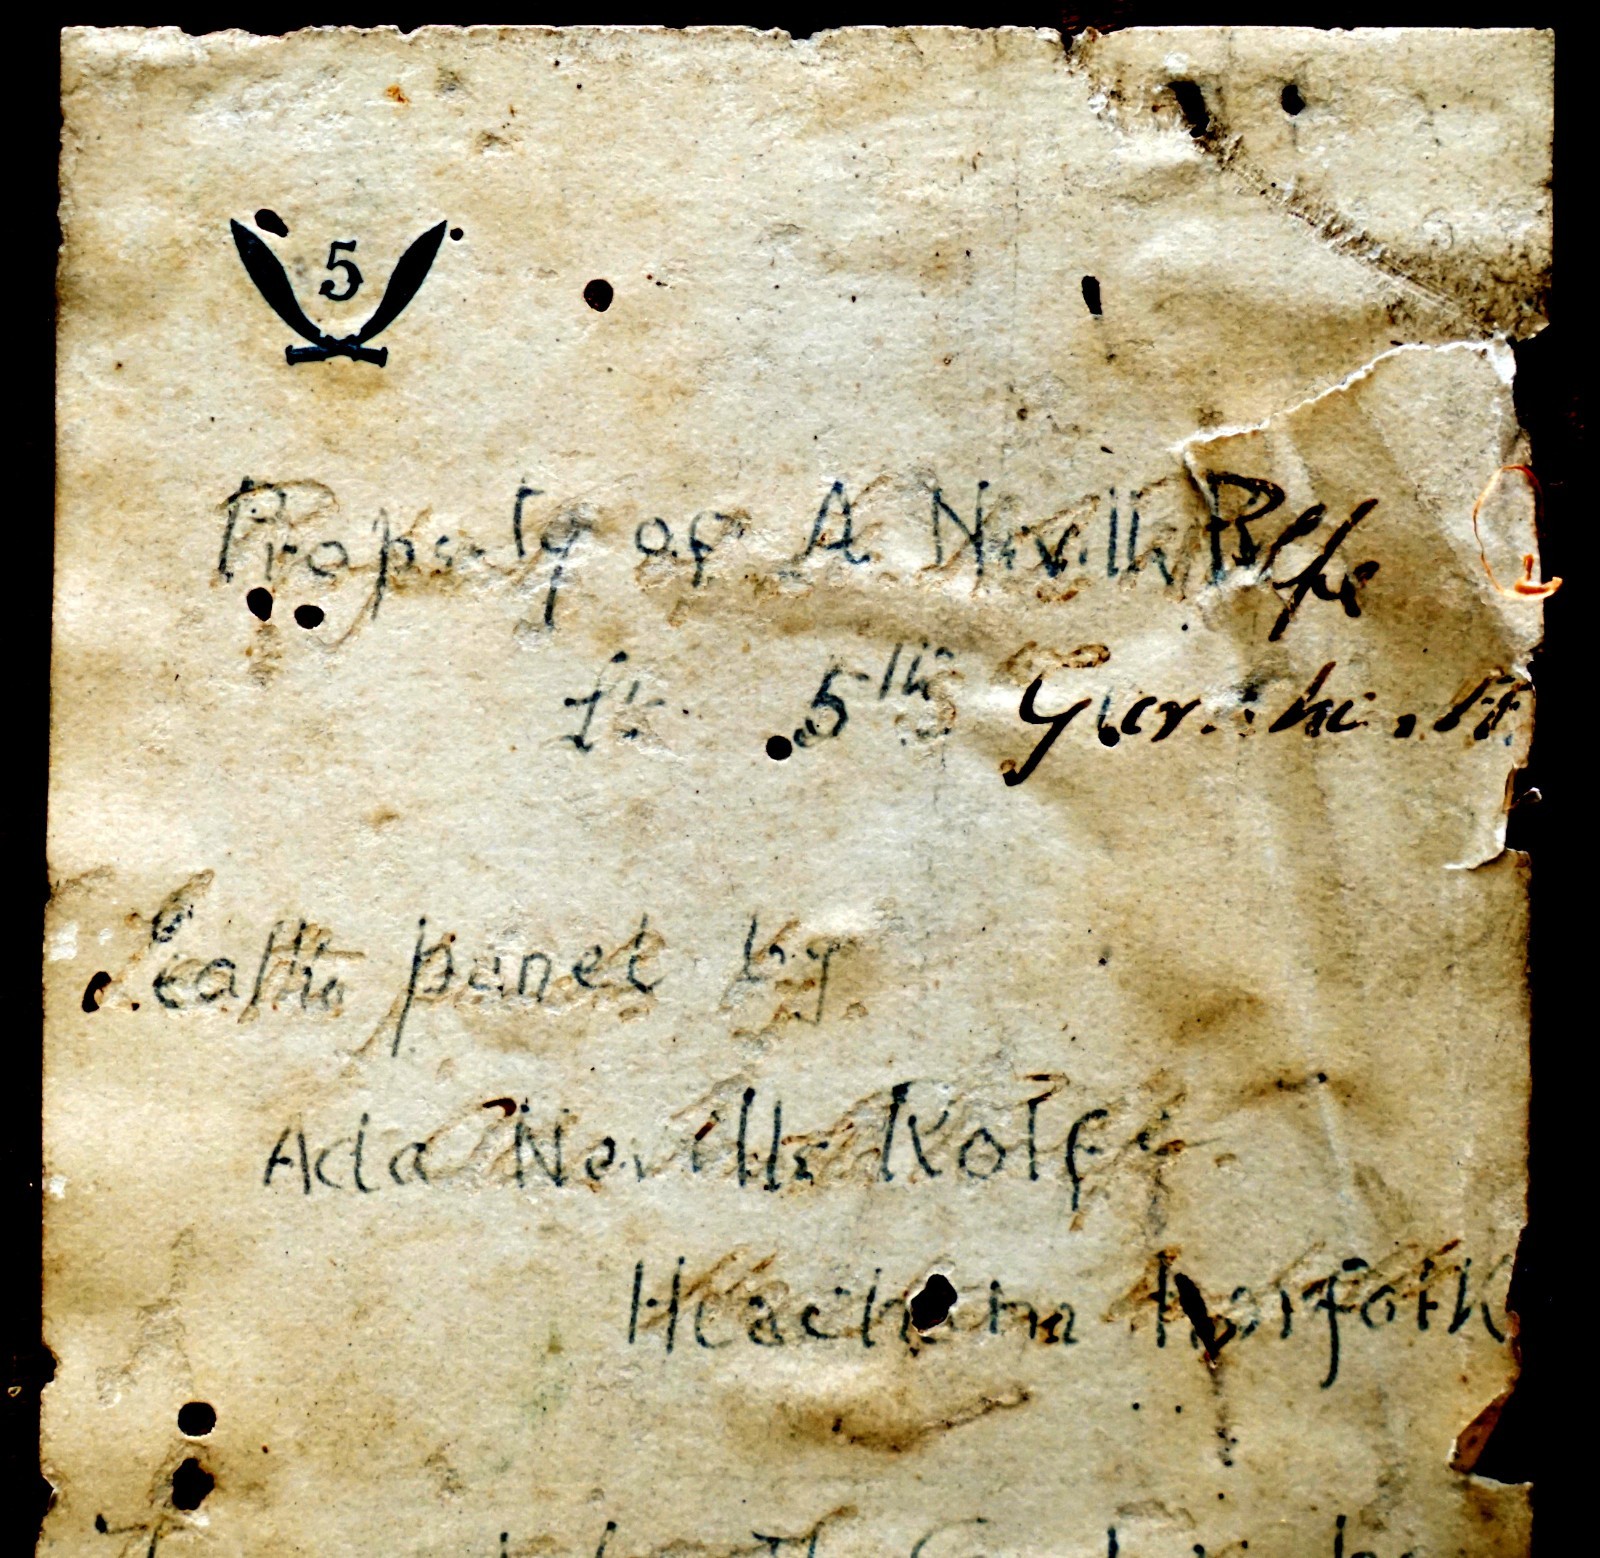 5
Property of A Neville Rolfe
Lt. 5th Gurkha Rt
Leather panel by
Ada Neville Rolfe
Heacham Norfolk